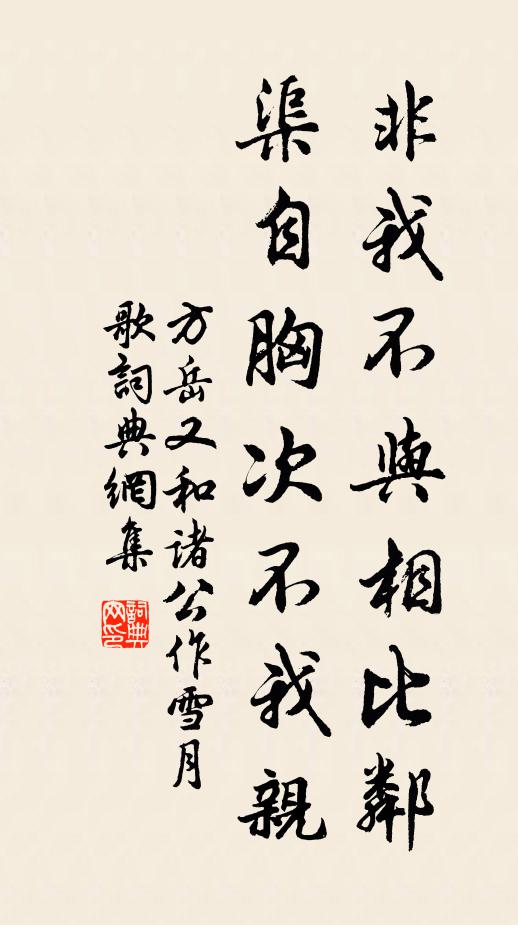 非我不與相比鄰
渠自胸次不我親
方岳又和諸公作雪月
歌詞典網集
詞典网印